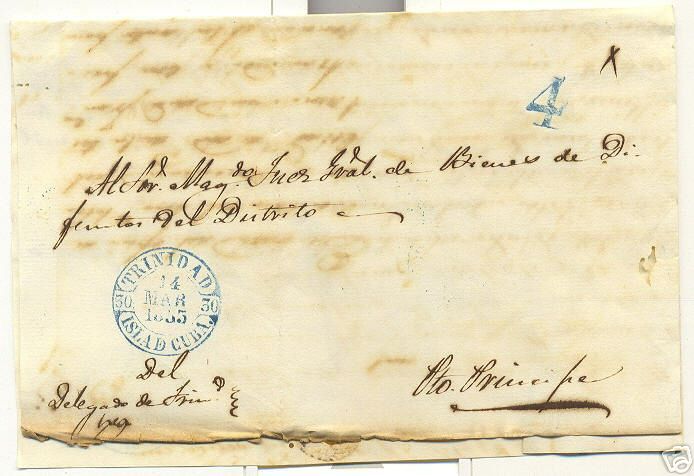 4
x
Al Sor. Mag.do Juez Gral. de Bienes de Di-
funtos del Distrito
TRINIDAD
14
MAR
30 1855 30
ISLA DE CUBA.
Del
Delegado de Trind.
Pto. Principe